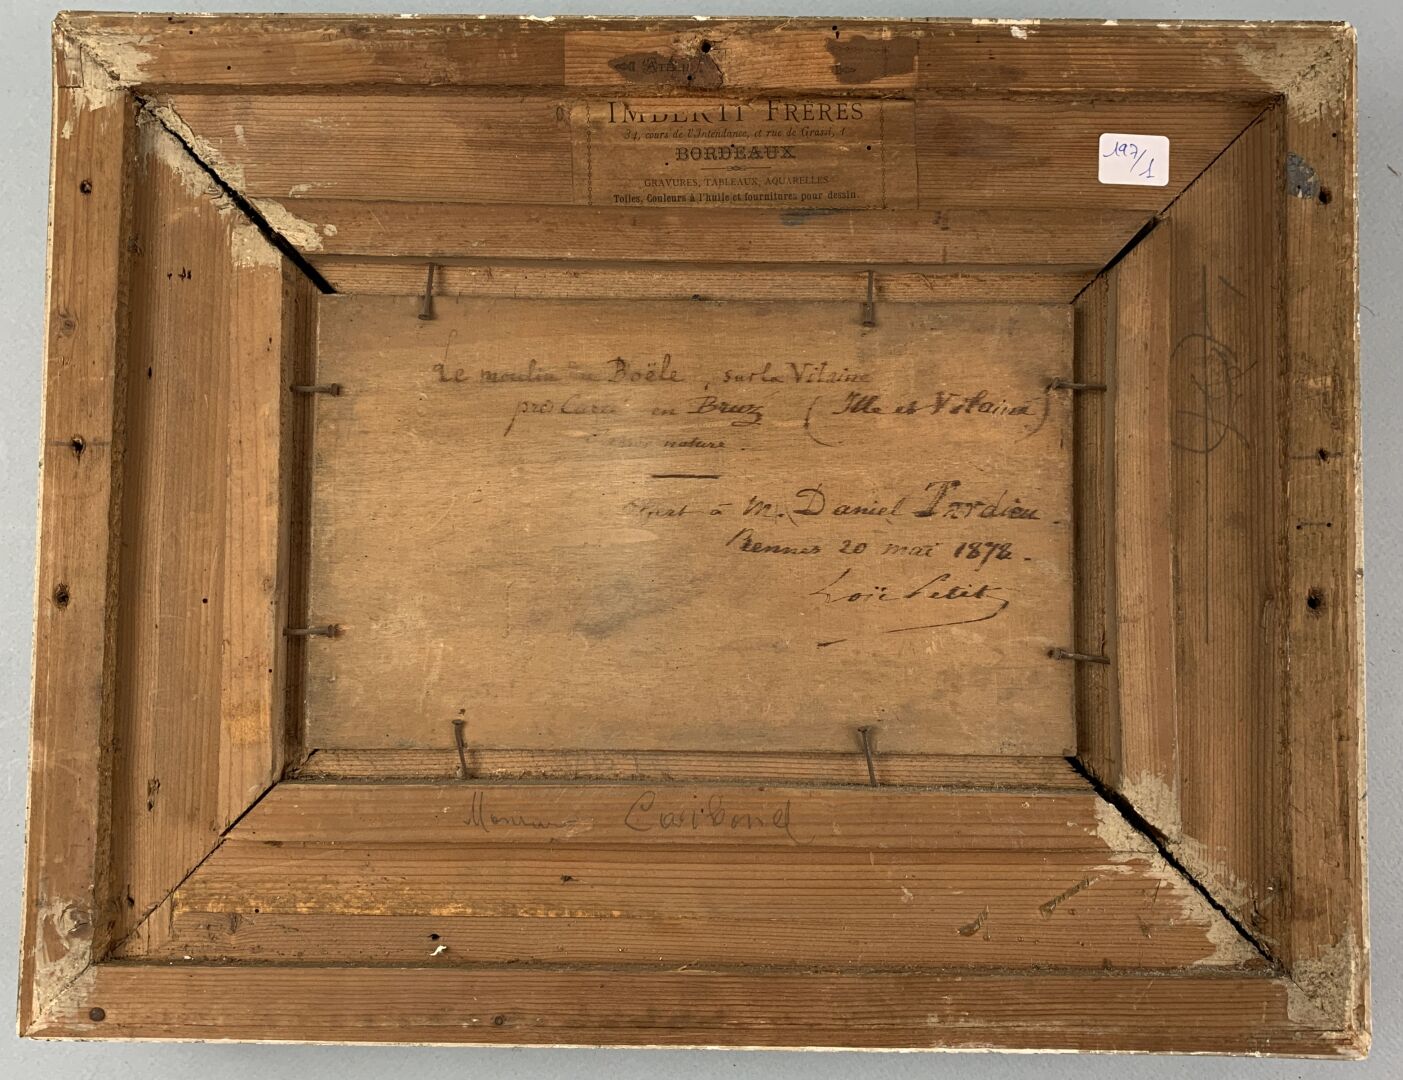 IMBERTI FRÈRES
34, cours de l'Intendance, et rue de Grassi, 1
BORDEAUX
GRAVURES, TABLEAUX, AQUARELLES
Toiles, Couleurs à l'huile et fournitures pour dessin.
197/1
Le moulin du Boële, sur la Vilaine
près en Bruz (Ille et Vilaine)
nature
offert à M. Daniel Tardieu.
Rennes 20 mai 1878.
Loïc Petit
Monsieur